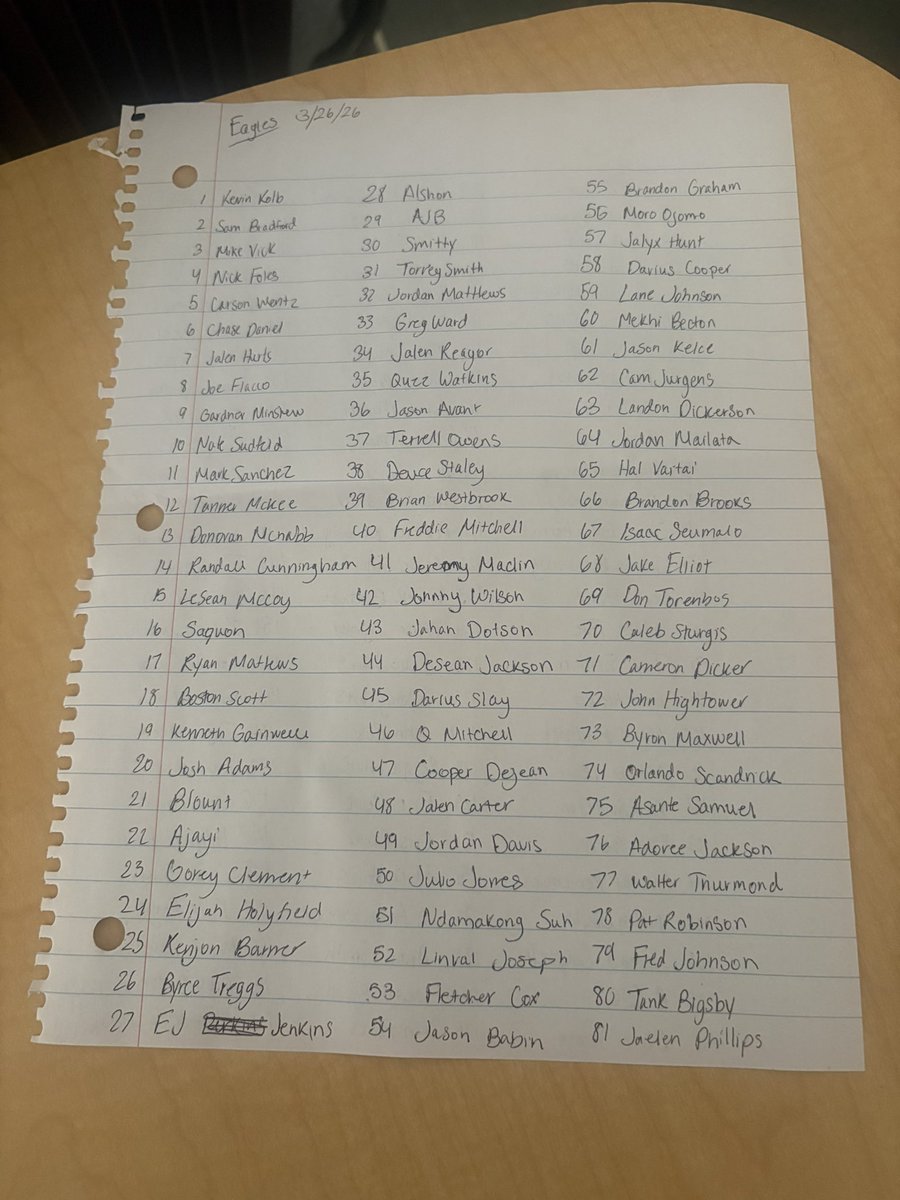 Eagles 3/26/26
1 Kevin Kolb
2 Sam Bradford
3 Mike Vick
4 Nick Foles
5 Carson Wentz
6 Chase Daniel
7 Jalen Hurts
8 Joe Flacco
9 Gardner Minshew
10 Nate Sudfeld
11 Mark Sanchez
12 Tanner McKee
13 Donovan Mcnabb
14 Randall Cunningham
15 LeSean McCoy
16 Saquon
17 Ryan Mathews
18 Boston Scott
19 Kenneth Gainwell
20 Josh Adams
21 Blount
22 Ajayi
23 Corey Clement
24 Elijah Holyfield
25 Kenjon Barner
26 Byrce Treggs
27 EJ Jenkins
28 Alshon
29 AJB
30 Smitty
31 Torrey Smith
32 Jordan Matthews
33 Greg Ward
34 Jalen Reagor
35 Quez Watkins
36 Jason Avant
37 Terrell Owens
38 Deuce Staley
39 Brian Westbrook
40 Freddie Mitchell
41 Jeremy Maclin
42 Johnny Wilson
43 Jahan Dotson
44 Desean Jackson
45 Darius Slay
46 Q Mitchell
47 Cooper Dejean
48 Jalen Carter
49 Jordan Davis
50 Julio Jones
51 Ndamakong Suh
52 Linval Joseph
53 Fletcher Cox
54 Jason Babin
55 Brandon Graham
56 Moro Ojomo
57 Jalyx Hunt
58 Darius Cooper
59 Lane Johnson
60 Mekhi Becton
61 Jason Kelce
62 Cam Jurgens
63 Landon Dickerson
64 Jordan Mailata
65 Hal Vaitai
66 Brandon Brooks
67 Isaac Seumalo
68 Jake Elliot
69 Don Torenbos
70 Caleb Sturgis
71 Cameron Dicker
72 John Hightower
73 Byron Maxwell
74 Orlando Scandrick
75 Asante Samuel
76 Adoree Jackson
77 Walter Thurmond
78 Pat Robinson
79 Fred Johnson
80 Tank Bigsby
81 Jaelen Phillips